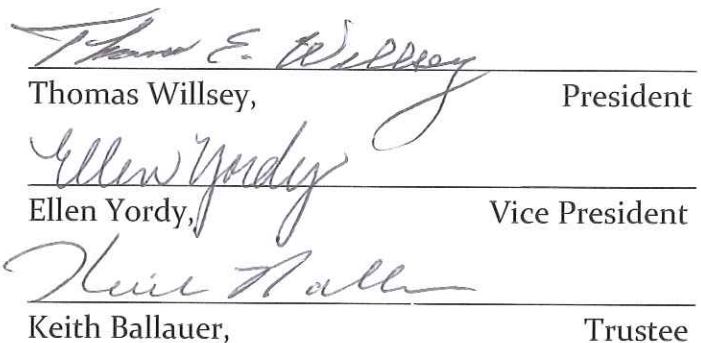 Thomas E. Willsey
Thomas Willsey, President
Ellen Yordy
Ellen Yordy, Vice President
Keith Ballauer, Trustee